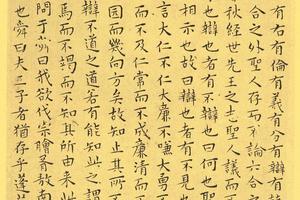 有右有倫有義有分有辯有
合之外聖人存而不論六合之
秋經世先王之志聖人議而
也辯也者有不辯也曰何也聖
相示也故曰辯也者有不見
言大仁不仁大廉不嗛大勇
而不及仁常而不成廉清而
园而幾向方矣故知止其所
辯不道之道若有能知此之謂
焉而不竭而不知其所由來此
問於舜曰我欲伐宗膾胥敖南
也舜曰夫三子者猶存乎蓬艾